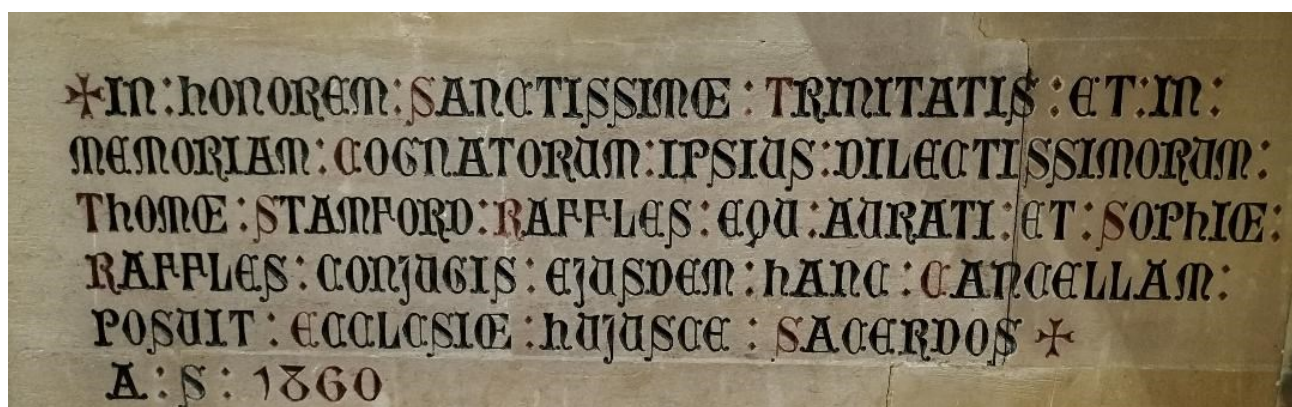 ✠IN:HONOREM:SANCTISSIMŒ:TRINITATIS:ET:IN:
MEMORIAM:COGNATORUM:IPSIUS:DILECTISSIMORUM:
THOMŒ:STAMFORD:RAFFLES:EQU:AURATI:ET:SOPHIŒ:
RAFFLES:CONJUGIS:EJUSDEM:HANC:CANCELLAM:
POSUIT:ECCLESIŒ:HUJUSCE:SACERDOS✠
A:S:1860